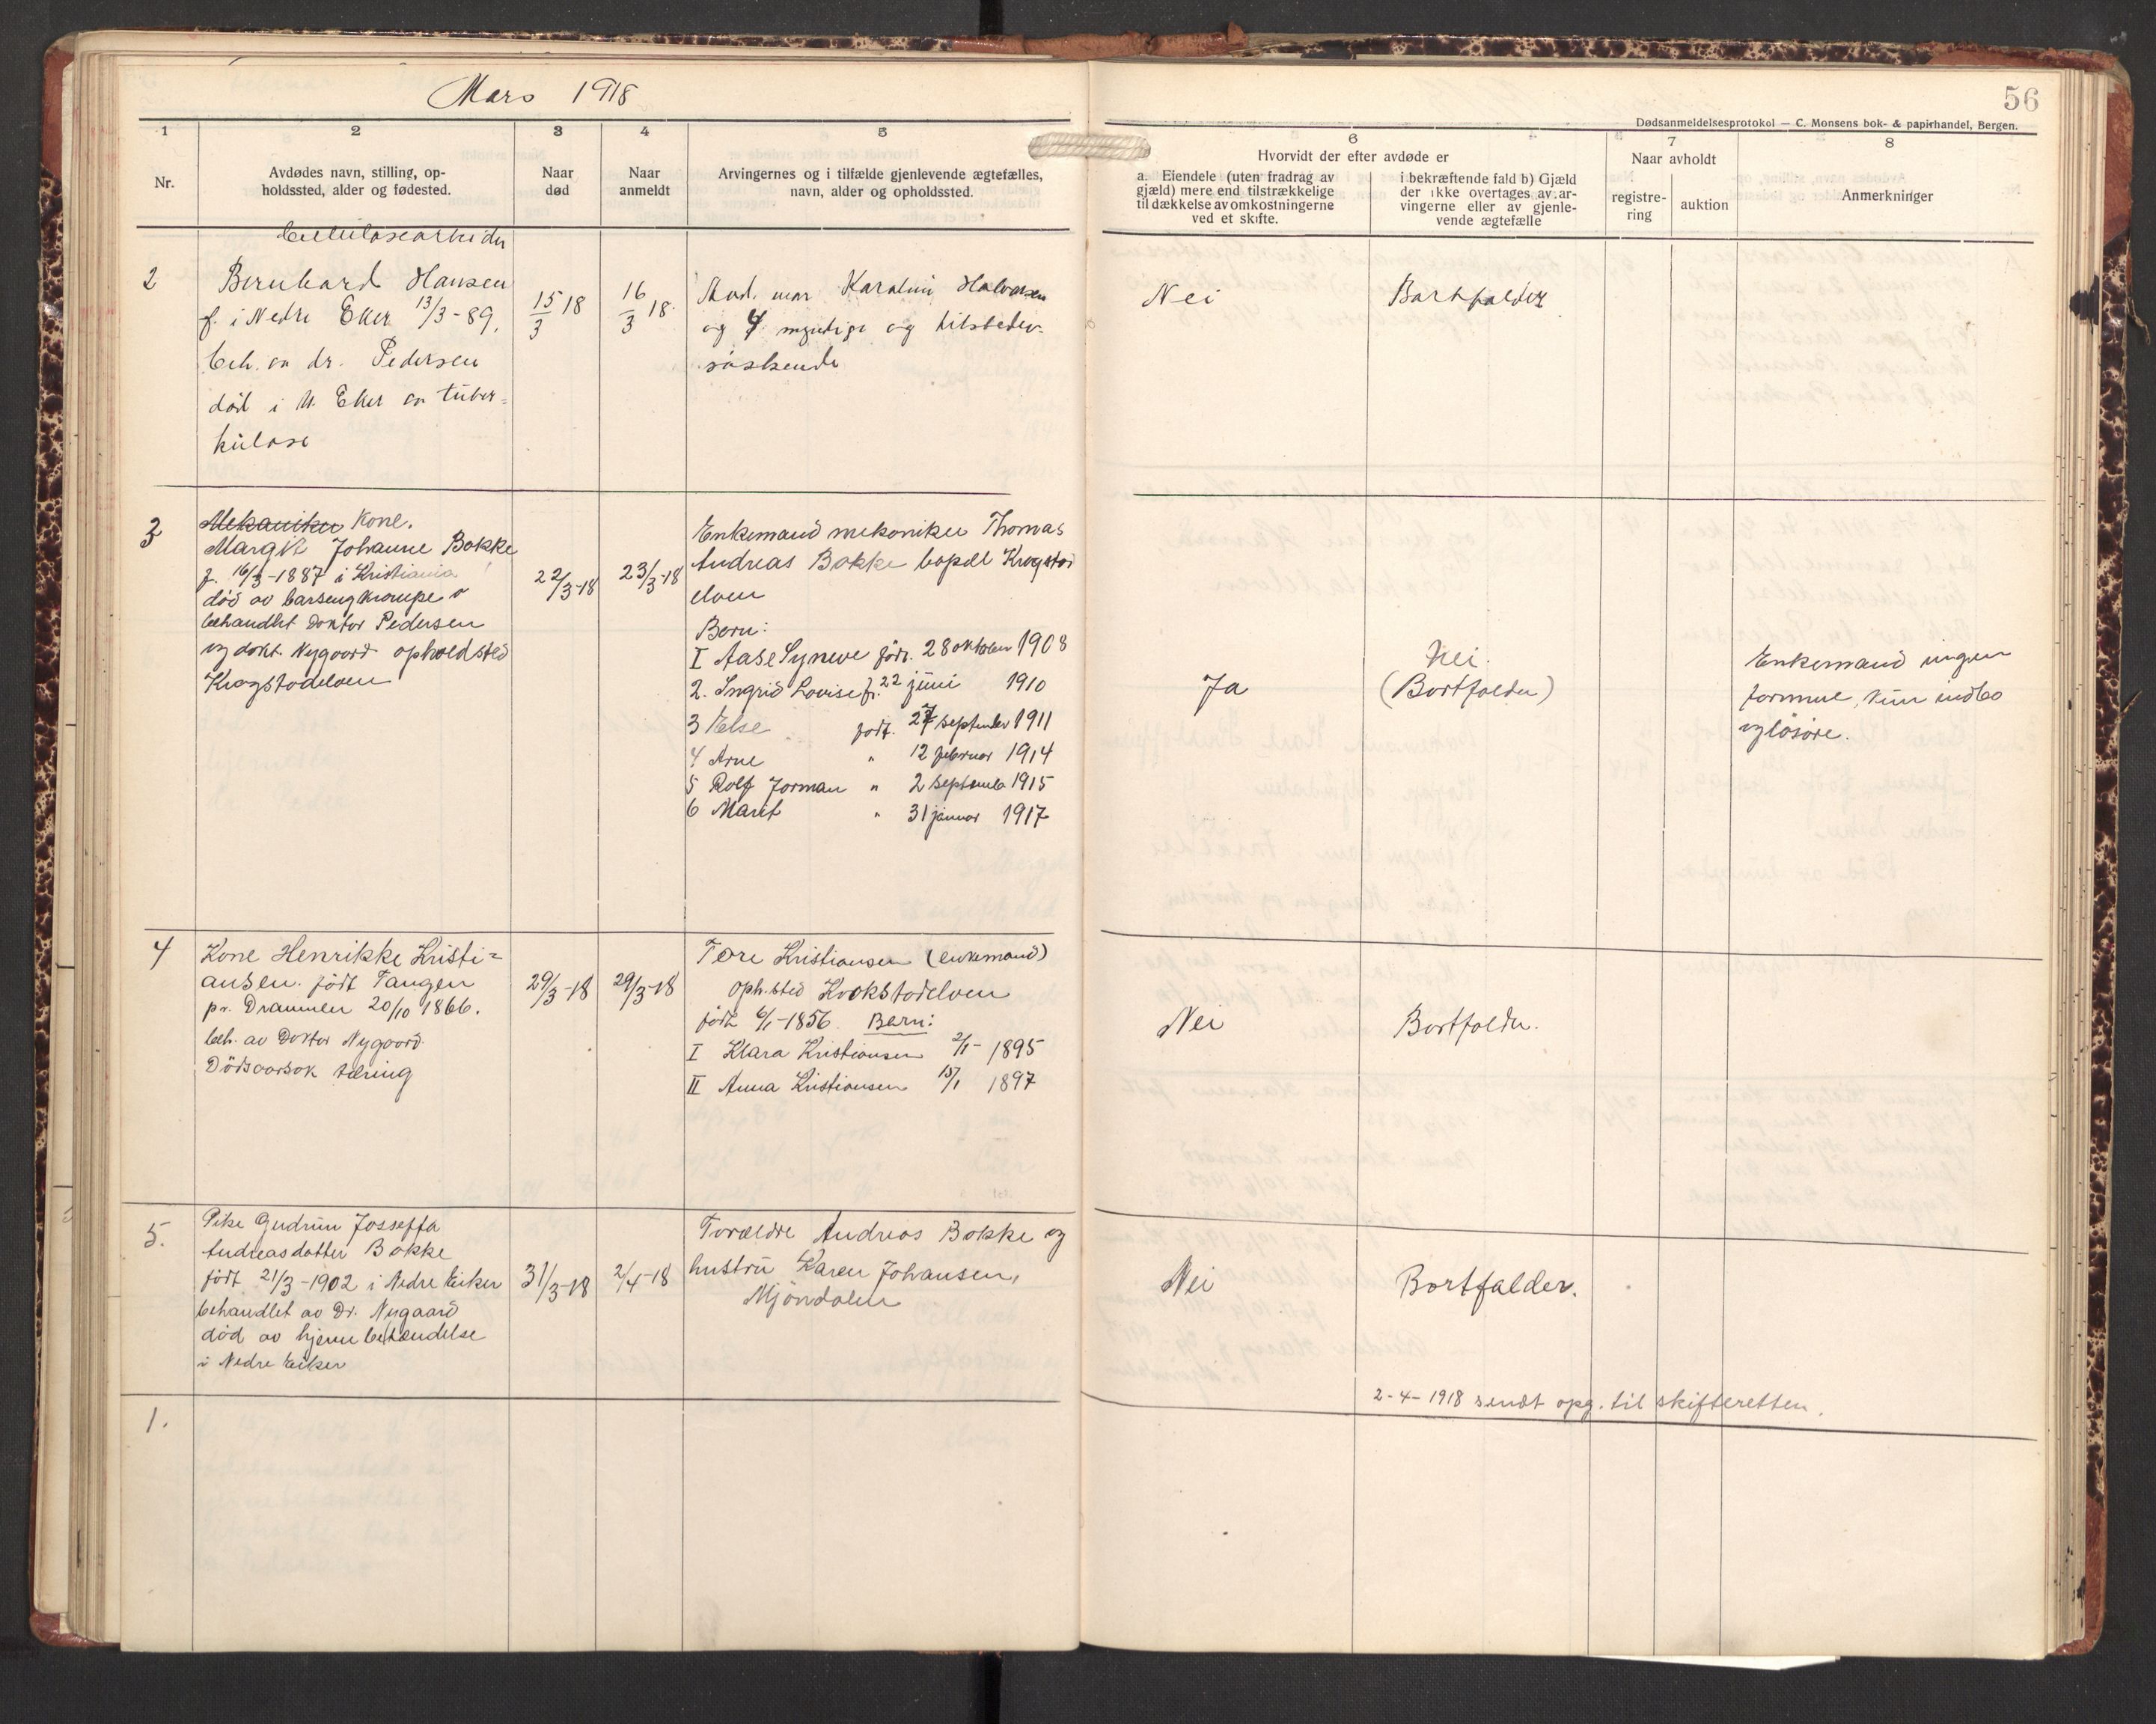 Mars 1918
56
Dødsanmeldelsesprotokol — C. Monsens bok- & papirhandel, Bergen.
1
Nr.
2
Avdødes navn, stilling, op-
holdssted, alder og fødested.
3
Naar
død
4
Naar
anmeldt
5
Arvingernes og i tilfælde gjenlevende ægtefælles,
navn, alder og opholdssted.
6
Hvorvidt der efter avdøde er
a. Eiendele (uten fradrag av
gjæld) mere end tilstrækkelige
til dækkelse av omkostningerne
ved et skifte.
i bekræftende fald b) Gjæld
der ikke overtages av ar-
vingerne eller av gjenle-
vende ægtefælle
7
Naar avholdt
registre-
ring
auktion
8
Anmerkninger
2
Cellulosearbeider
Bernhard Hansen
f. i Nedre Eker 13/3-89.
beh. av dr. Pedersen
död i N. Eker av tuber=
kulose
15/3 18
16/3 18.
mor Karoline Halvorsen
og 4 myndige og tilstedev.
söskende
Nei
Bortfalder
3
Mekaniker Kone.
Margit Johanne Bakke
f. 16/3-1887 i Kristiania
död av barsengkrampe
behandlet Doktor Pedersen
og dokt. Nygaard opholdsted
Krogstadelven
22/3-18
23/3-18
Enkemand mekaniker Thomas
Andreas Bakke bopæl Krogstad
elven
Barn:
I Aase Synove födt. 28 oktober 1908
2. Ingrid Lovise f. 22 juni 1910
3 Else födt. 27 september 1911
4 Arne " 12 februar 1914
5 Rolf Jorman " 2 septemb 1915
6 Marit " 31 januar 1917
Ja
Nei.
(Bortfalder)
Enkemand ingen
formue, kun indbo
og lösöre.
4
Kone Henrikke Kristi=
ansen. födt Tangen
pr. Drammen 20/10 1866.
beh. av Doktor Nygaard.
Dödsaarsak tæring
29/3-18
29/3-18
Tore Kristiansen (enkemand)
oph.sted Krokstadelven
födt 6/1-1856 Barn:
I Klara Kristiansen 2/1- 1895
II Anna Kristiansen 15/1 1897
Nei
Bortfalder.
5.
Pike Gudrun Josseffa
Andreasdatter Bakke
födt 21/3-1902 i Nedre Eiker
behandlet av Dr. Nygaard
död av hjernebetændelse
i Nedre Eiker
31/3-18
2/4-18
Forældre Andreas Bakke og
hustru Karen Johansen,
Mjöndalen
Nei
Bortfalder.
2-4-1918 sendt opg. til skifteretten.
1.